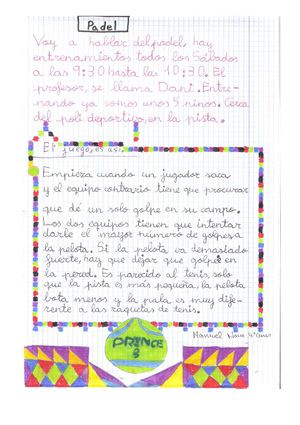 Padel
Voy a hablar del padel, hay
entrenamientos todos los Sábados
a las 9:30 hasta las 10:30. El
profesor, se llama Dani. Entre-
nando ya somos unos 5 ninos. Cerca
del poli deportivo, en la pista.
El juego, es así.
Empieza cuando un jugador saca
y el equipo contrario tiene que procurar
que dé un solo golpe en su campo.
Los dos equipos tienen que intentar
darle el mayor número de golpes a
la pelota. Si la pelota va demasiado
fuerte, hay que dejar que golpeé en
la pared. Es parecido al tenis, solo
que la pista es más pequeña, la pelota
bota menos y la pala es muy dife-
rente a las raquetas de tenis.
Manuel
PRINCE
3